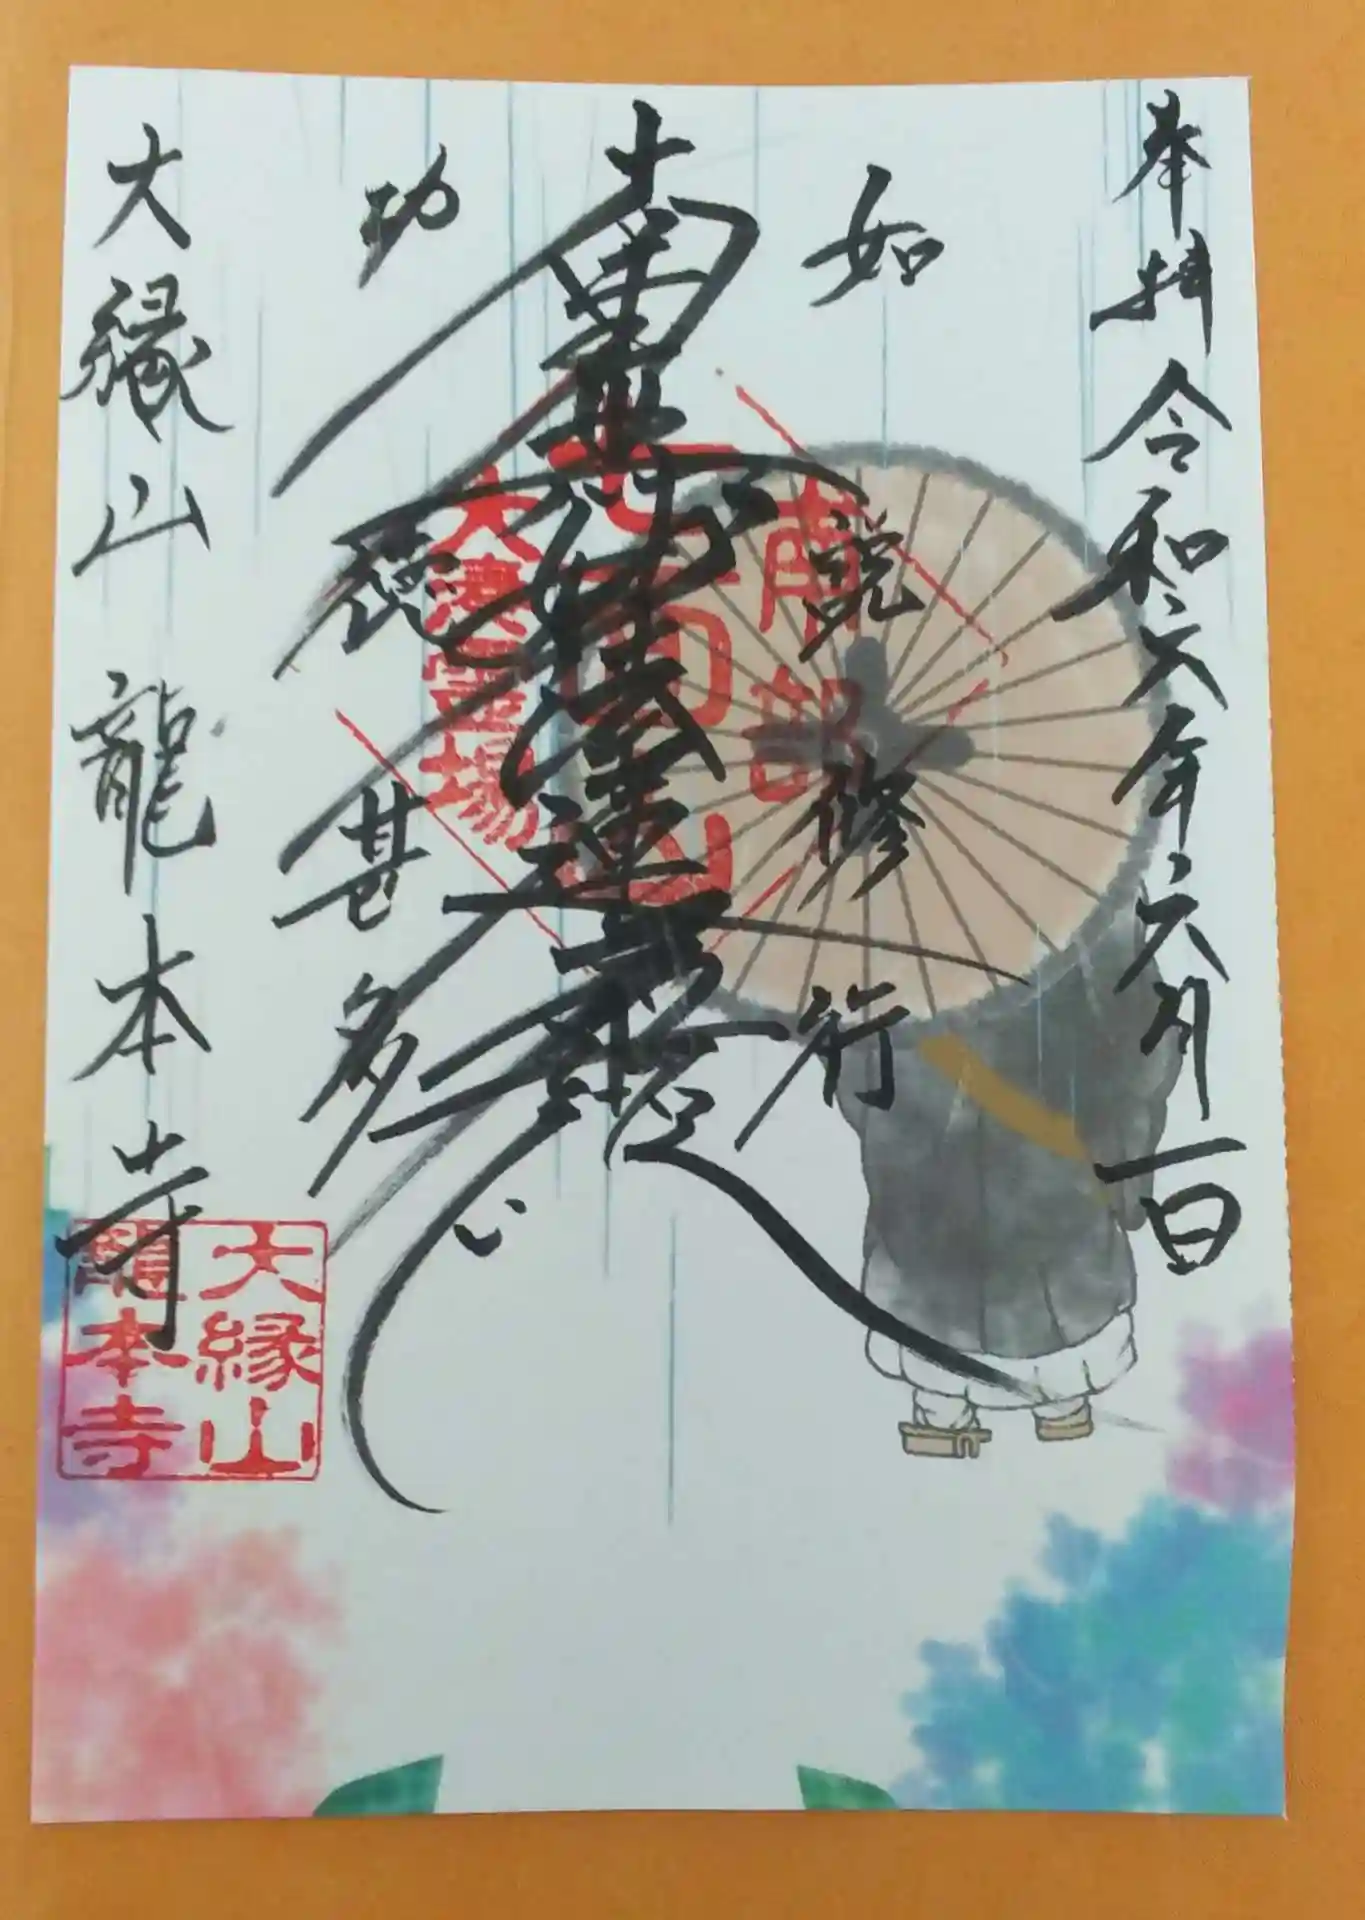 奉拝 令和六年六月一日
如説修行
南無妙法蓮華経
功徳甚多
大縁山 龍本寺
南部
大漢霊場
大縁山
龍本寺